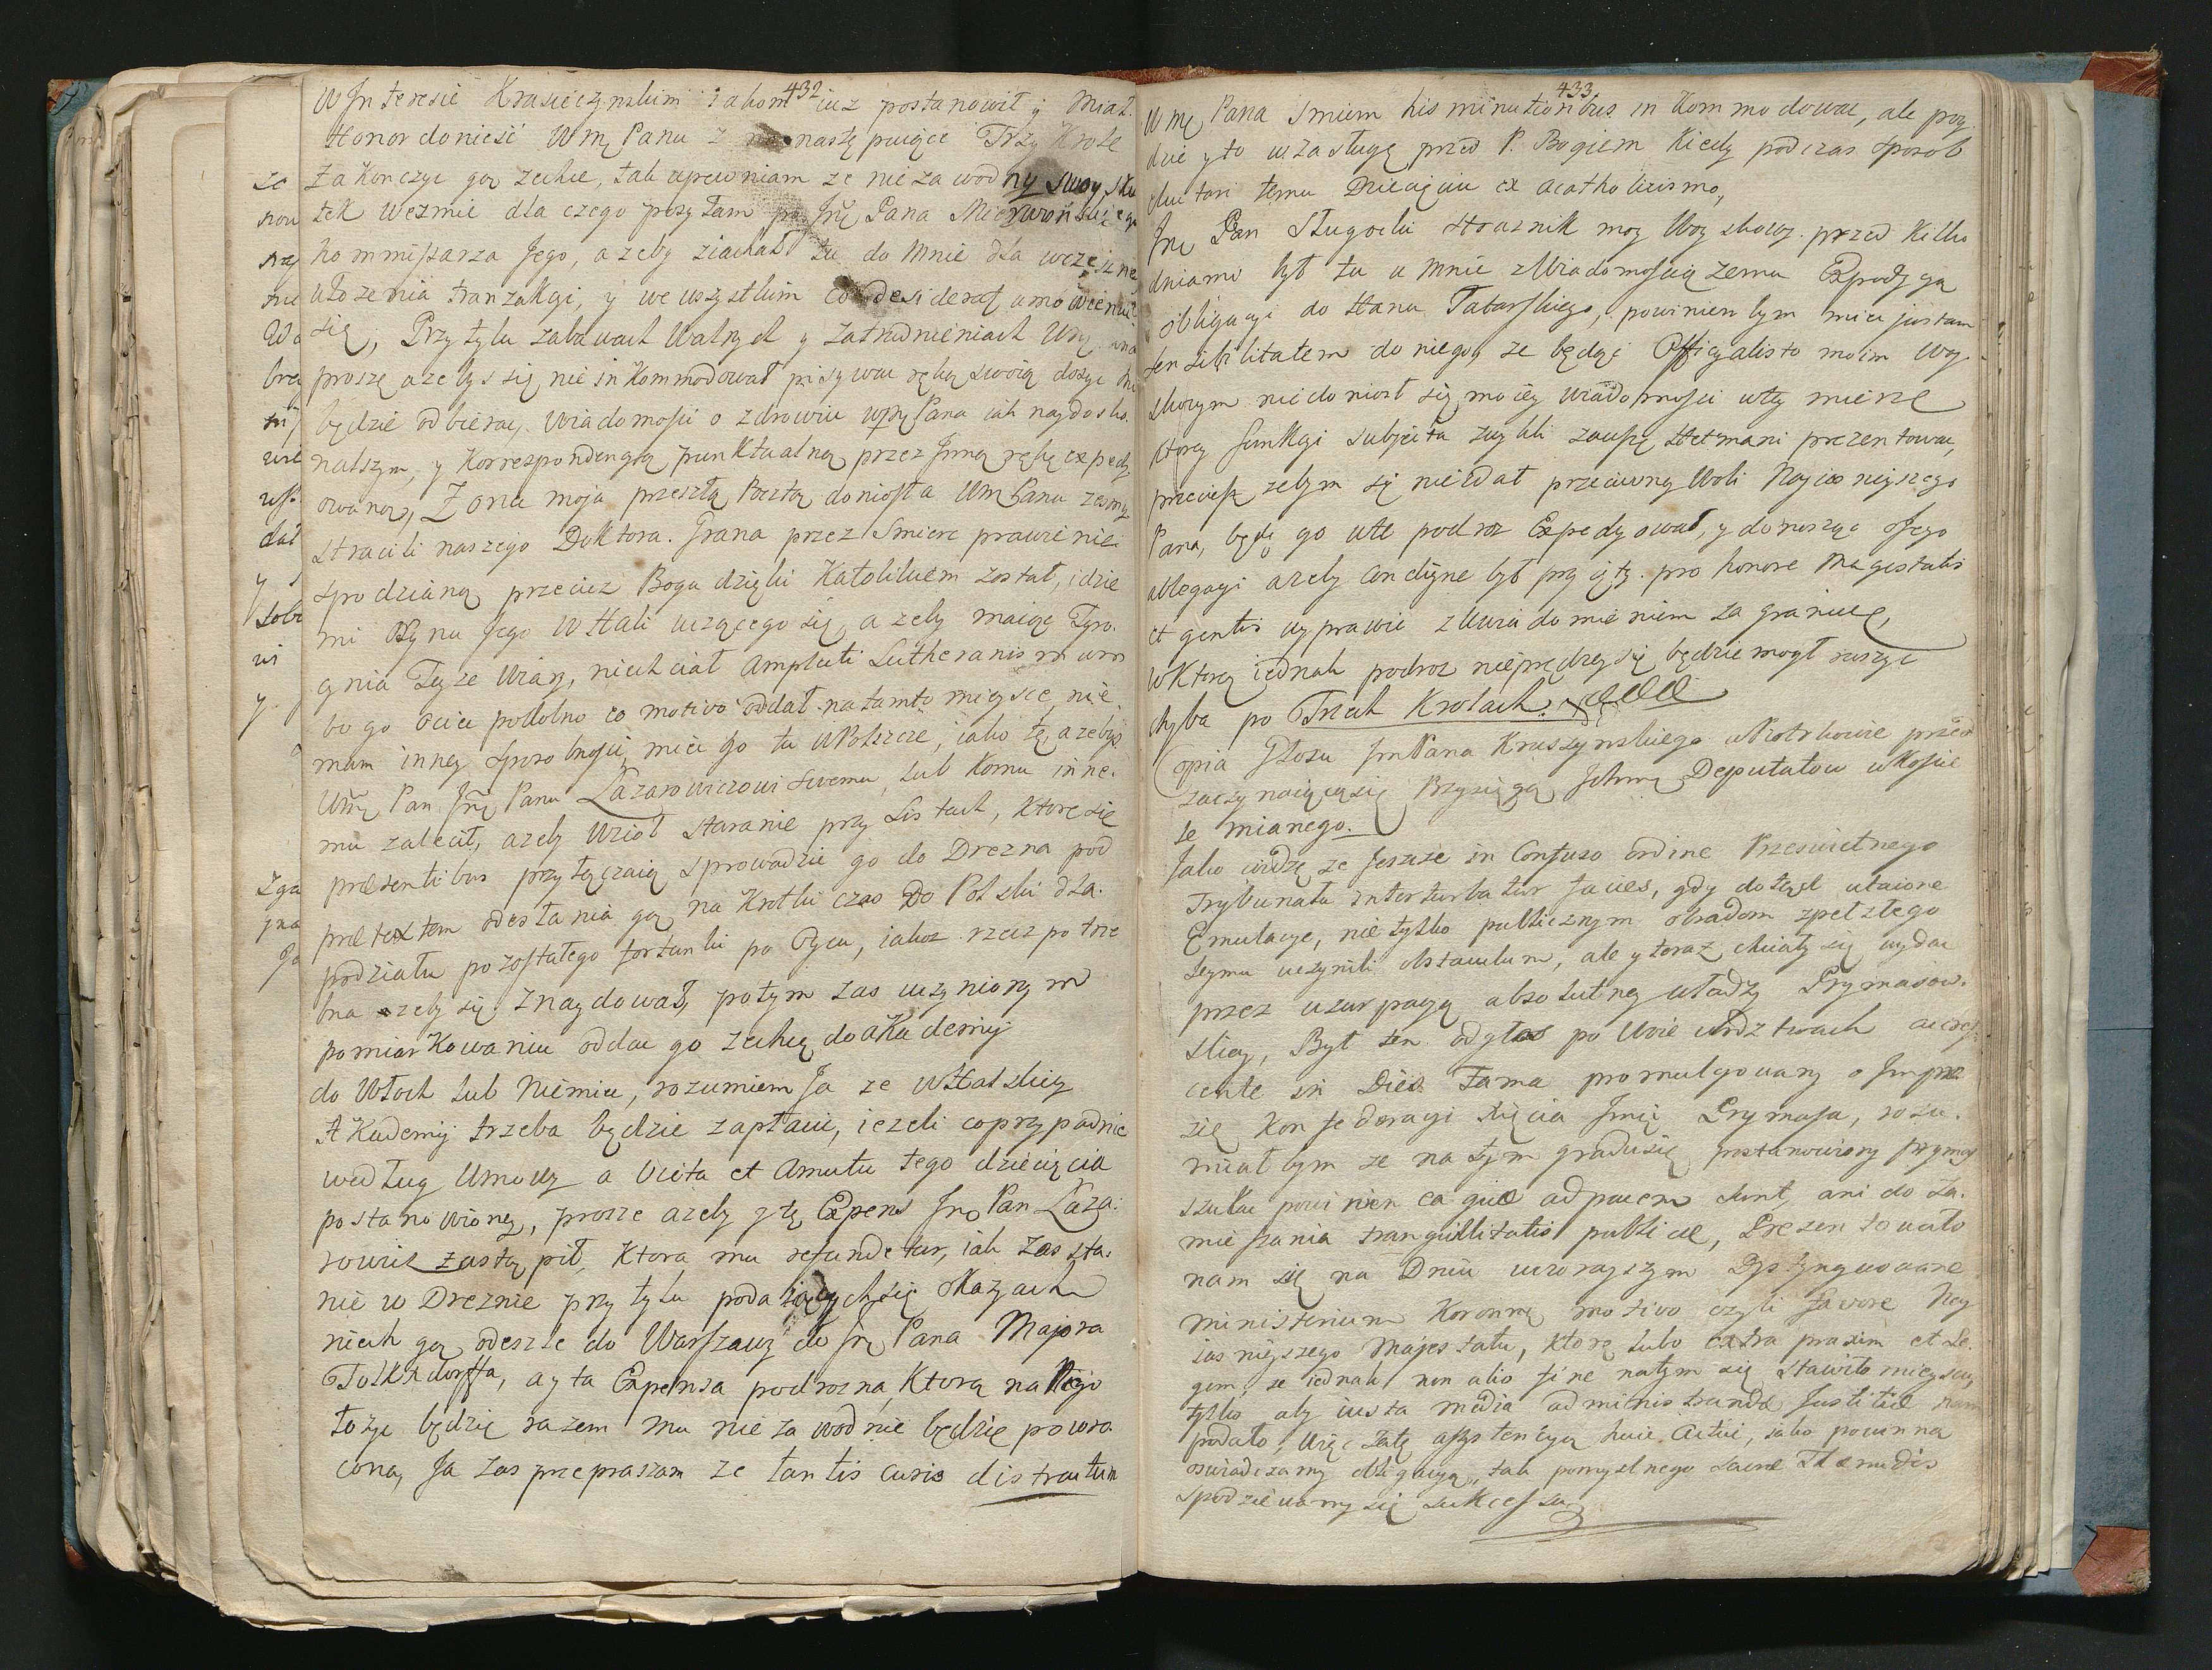 432
W Interesie Krasieczynskim iakom iuz postanowił y Miał
Honor doniesć Wmę Panu z nastę puiące Trzy Krole
Zakonczyc gą zechce, tak upewniam ze nieza wodny swoy sku
tek wezmie dla czego posyłam po Jmę Pana Mierzwińskiego
kommissarza Jego, azeby ziachał tu do Mnie dla wczesney
ułozenia tranzakcyi, y we wszystkim co desiderat umowienia
się, Przy tylu zabawach Walnych y zatrudnieniach
proszę azebys się nie inkommodował pisywac ręką swoią dosyc
będzie odbierac, wiadomosci o zdrowiu Wmę Pana iak naydosko.
nalszym, y Korrespondencyą punktualną przez Inną rękę expedy
owaną, Zona moja przeszłą Pocztą doniosła Wm Panu zesmy
stracili naszego Doktora. Grana przez Smierc prawie nie
spodzianą przeciez Bogu dzięki Katolikiem został, idzie
mi Syna Jego w Hali uczącego się, a zeby maiąc Tyro.
cynia Teyze Wiary, niechciał amplecti Lutheranismum
bo go ociec podobno eo motivo oddał na tamto mieysce, nie
mam inney sposobnosci, miec go tu w Polszcze, iako tę, azebys
Wmę Pan Jmę Panu Lazarowiczowi swemu, lub Komu inne.
mu zalecił, azeby Wziął staranie przy Listach, ktore się
præsentibus przyłączaią sprowadzic go do Drezna pod
prætextem odesłania gą na Krotki czas Do Polski dla.
podziału pozostałego fortunki po Oycu, iakoz rzecz potrze
bna azeby się znaydował, potym zas uczyniony m
pomiarkowaniu oddac go zechcę do akademij
do Włoch lub Niemiec, rozumiem Ja ze w Halskiey
Akademij trzeba będzie zapłacic, iezeli co przypadnie
według Umowy a Victu et Amictu tego dziecięcia
postanowioney, prosze azeby y tę Expens Jmę Pan Laza:
rowicz zastąpił, ktora mu refundetur, iak zas sta.
nie w Dreznie przy tylu podaiących się okazyach
niech gą odeszle do Warszawy do Jmę Pana Majora
Tolkzdorffa, a y ta Expensa podrozna, Ktorą na Niego
łozyc będzie razem mu niezawodnie będzie powro
cona, Ja zas przepraszam ze tantis curis distractum
433
Wmę Pana Smiem his minutioribus in kommodowac, ale przy
dzie y to w zasługę przed P. Bogiem Kiedy podczas sposob
eluctari temu Dziecięciu ex acatholicismo,
Jmę Pan Sługocki straznik moy Woyskowy. przed Kilko
dniami był tu u Mnie z Wiadomoscią ze ma Expedycyą
obligacyi do Hana Tatarskiego, powinien bym miec justam
sensibilitatem do niego, ze będąc Officyalistą moim Woy
skowym nie doniosł się moiey wiadomosci w tey mierze
ktorey funkcyi subjecta zwykli zawsze Hetmani prezentowac,
przeciesz zebym się nie zdał przeciwny Woli Nayiasnieyszego
Pana, będę go w te podroz Expedyował, y donosząc o Jego
ablegacyi azeby condigne był przyięty. pro honore Magestatis
et gentis wyprawie z Uwiadomieniem za granicę,
w Ktorą iednak podroz nieprędzey się będzie mogł ruszyc
chyba po Trzech Krolach.
Copia Głosu Jm Pana Kruszynskiego w Piotrkowie przed
zaczynaiącą się Przysięgą Ichmę Deputatow w Kosciele
mianego.
Jako widzę ze Jeszcze in Confuso ordine Przeswietnego
Trybunału interturbatur facies, gdy dotąd utaione
Emulacye, nie tylko publicznym obradom zpełzłego
Seymu uczynili obstaculum, ale y teraz chciały się wydac
przez uzurpacyą absolutney władzy Prymasow.
skiey, Był ten odgłos po Woiewodztwach accres
cente in Dies Fama promulgowany o Imprez
się Konfederacyi Xięcia Jmię Prymasa, rozu.
miał bym ze na tym gradusię postanowiony prymas
szukac powinien ea quæ ad pacem sunt, ani do za.
mieszania tranquillitatis publicæ, Prezentowało
nam się na Dniu wczorayszym Dystyngwowane
ministerium Koronne motivo czyli favore Nay
iasnieyszego Majestatu, ktore lubo extra praxim et Le
gem, ze iednak non alio fine natym się Stawiło mieyscu,
tylko aby iusta media administrandæ Justitiæ nam
podało, więc Zatę assystencyą huic Actui, iako powinna
oswiadczamy obligacyą, tak pomyslnego sacræ Themidis
spodziewamy się sukcessu